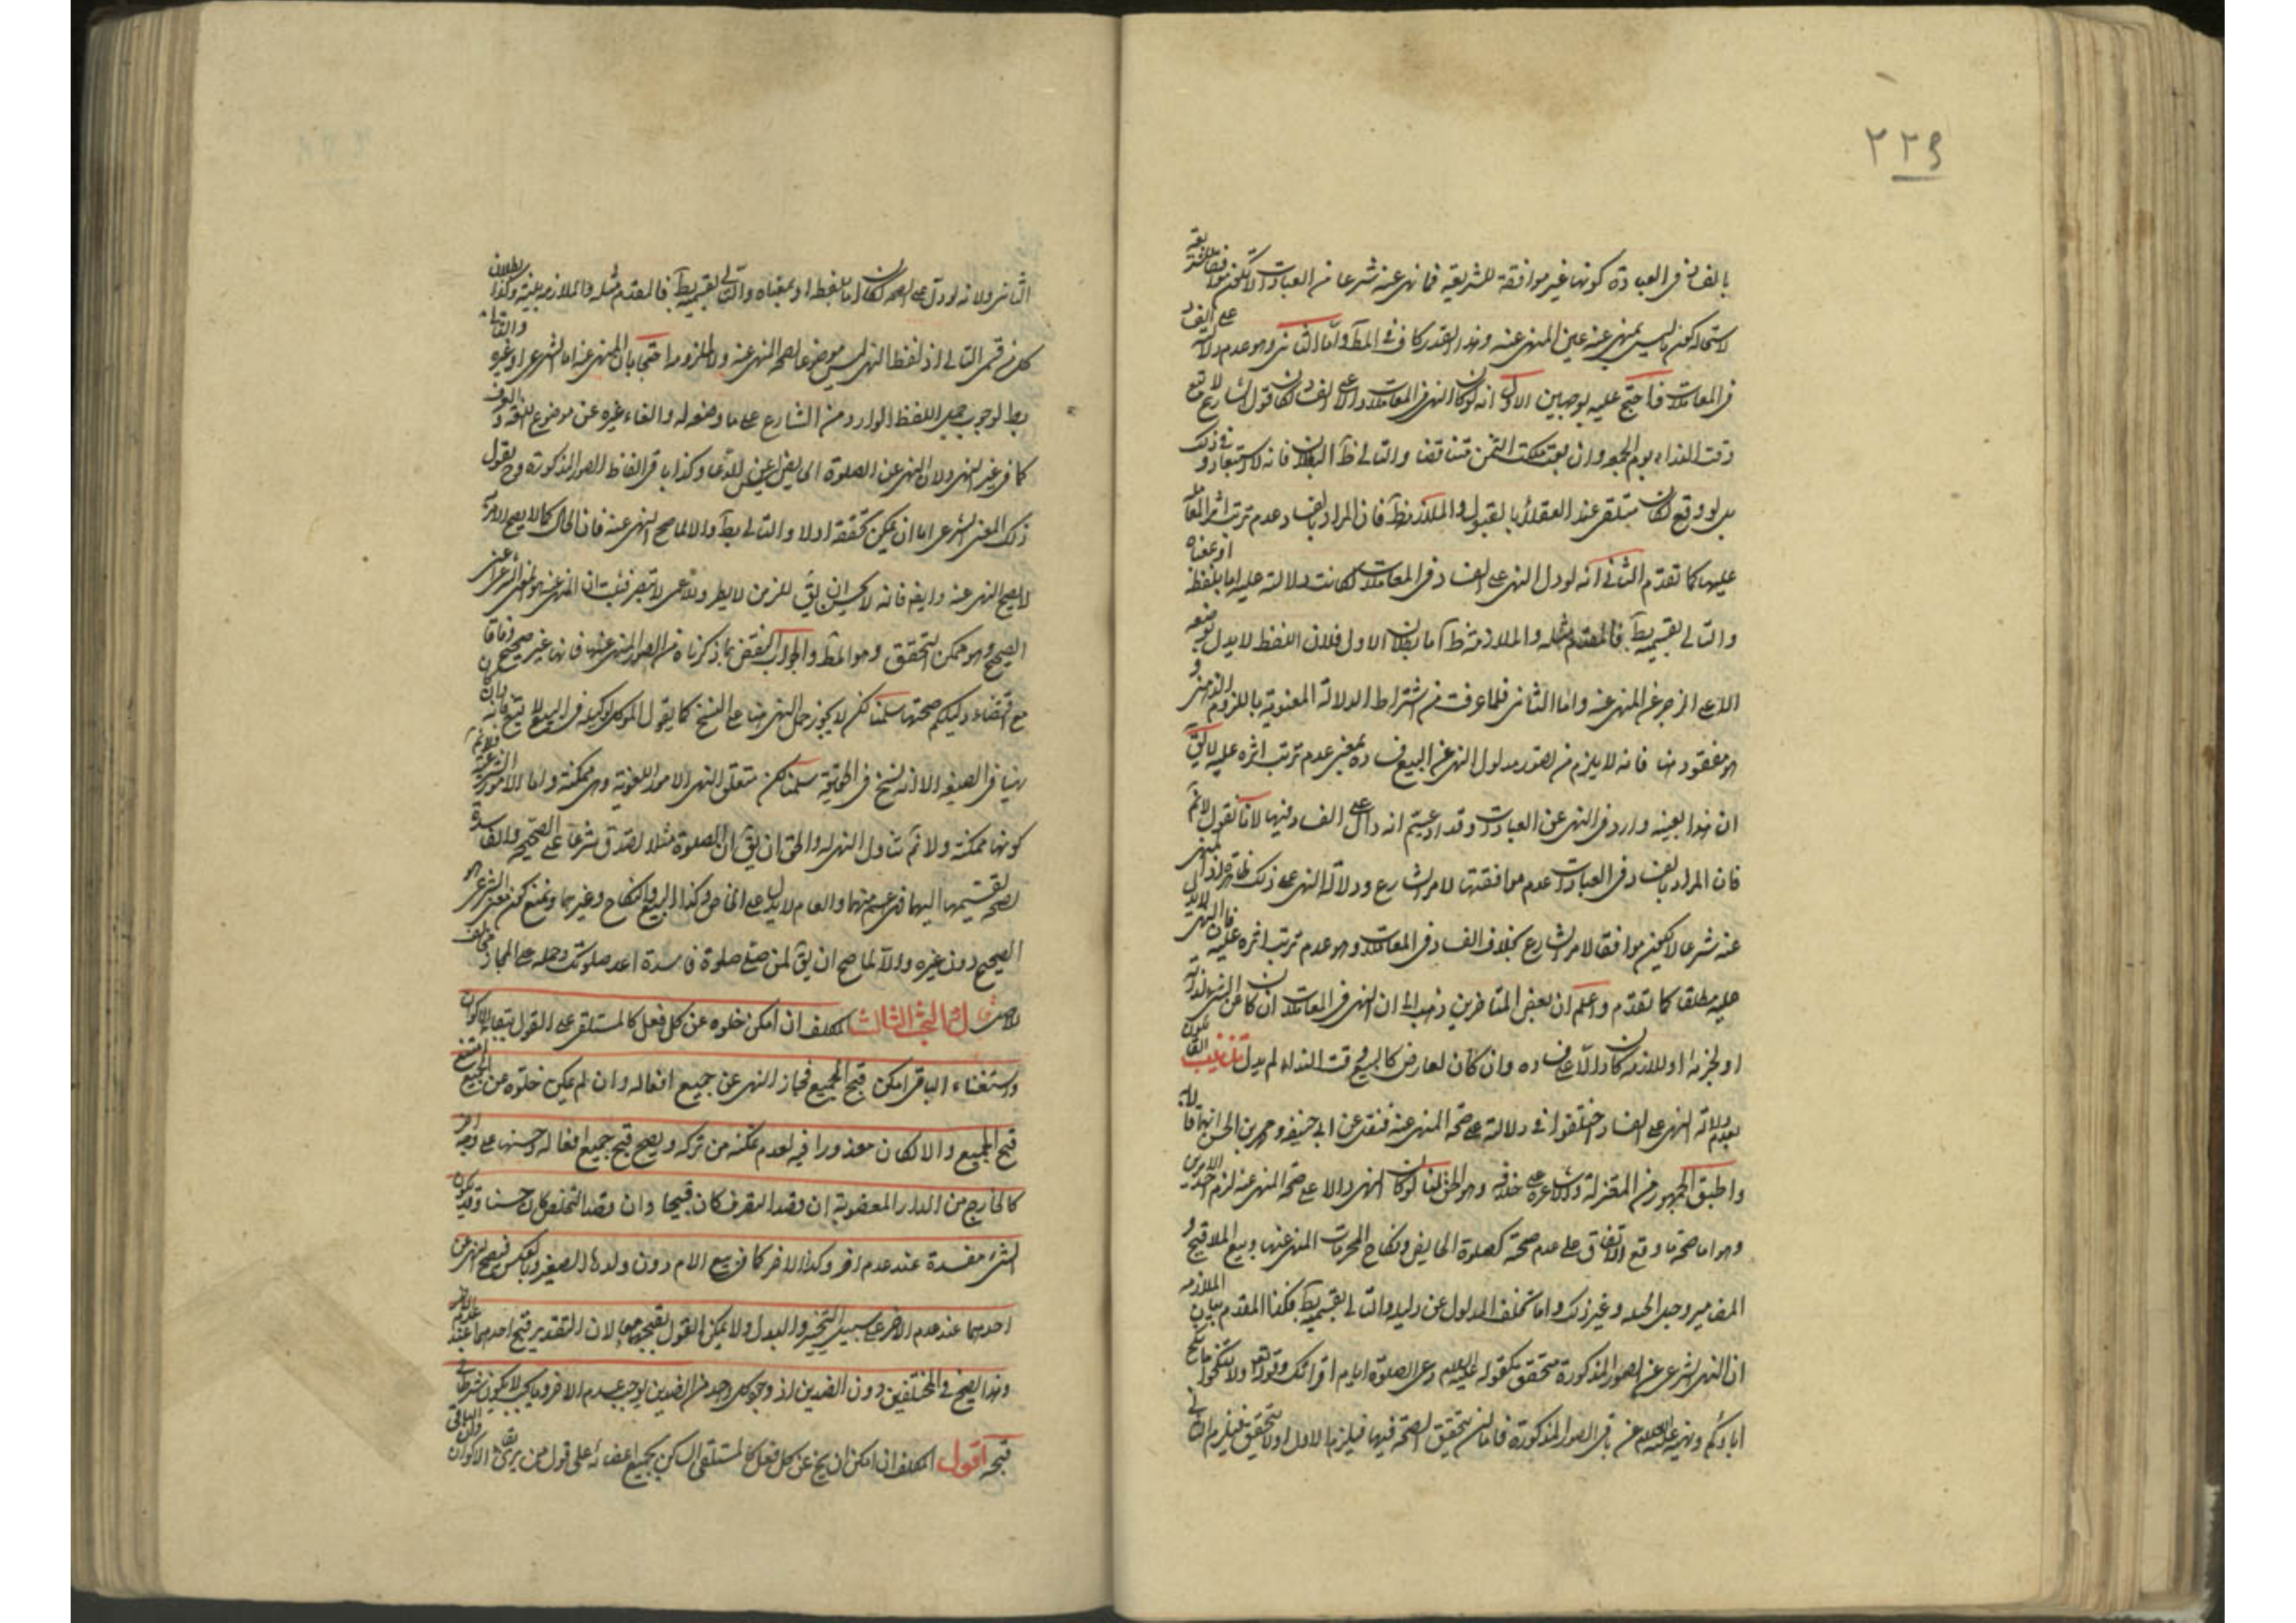 ٢٢٩
بالفساد في العبادة كونها غير موافقة للشريعة فما نهى عنه شرعا من العبادات لا يكون موافقا للشريعة
لاستحالة كون ما ليس بمنهى عنه عين المنهى عنه وهذا القدر كاف في المط واما الثانى وهو عدم دلالته على الفساد
في المعاملات فاحتج عليه بوجهين الاول انه لو كان النهى في المعاملات دالا على الفساد لكان قول الشارع لا تبع
وقت النداء يوم الجمعه وان بعت ملكت الثمن متناقضا والتالى ظ البطلان فانه لا استبعاد في ذلك
بل لو وقع لكان متلقى عند العقلاء بالقبول والملازمة ظ فان المراد بالفساد عدم ترتب اثر المعاملة
عليها كما تقدم الثانى انه لو دل النهى على الفساد في المعاملات لكانت دلالته عليه اما بلفظه او بمعناه
والتالى بقسميه بط فالمقدم مثله والملازمة ظ اما بطلان الاول فلان اللفظ لا يدل بوضعه
الا على الزجر عن المنهى عنه واما الثانى فلما عرفت من اشتراط الدلالة المعنوية باللزوم الذهنى و
هو مفقود هنا فانه لا يلزم من تصور مدلول النهى عن البيع فساده بمعنى عدم ترتب اثره عليه لا يق
ان هذا بعينه وارد في النهى عن العبادات وقد ادعيتم انه دال على الفساد فيها لانا نقول لا نم
فان المراد بالفساد في العبادات عدم موافقتها لامر الشارع ودلالة النهى على ذلك ظاهرة اذ المنهى
عنه شرعا لا يكون موافقا لامر الشارع بخلاف الفساد في المعاملات وهو عدم ترتب اثره عليه فان النهى لا يدل
عليه مطلقا كما تقدم واعلم ان بعض المتاخرين ذهب الى ان النهى في المعاملات ان كان عن الشئ لذاته
او لجزئه او للازمه كان دالا على فساده وان كان لعارض كالبيع وقت النداء لم يدل تذنيب القائلون
بعدم دلالة النهى على الفساد اختلفوا في دلالته على صحة المنهى عنه فنقل عن ابى حنيفه ومحمد بن الحسن انهما قالا به
واطبق الجمهور من المعتزلة والاشاعرة على خلافه وهو الحق لنا لو كان النهى دالا على صحة المنهى عنه لزم احد الامرين
وهو اما صحة ما وقع الاتفاق على عدم صحته كصلوة الحايض ونكاح المحرمات المنهى عنها وبيع الملاقيح و
المضامين وحبل الحبله وغير ذلك واما تخلف المدلول عن دليله والتالى بقسميه بط فكذا المقدم بيان الملازمه
ان النهى الشرعى عن الصور المذكورة متحقق كقوله عليه السلم دعى الصلوة ايام اقرائك وقوله تعالى ولا تنكحوا ما نكح
اباؤكم ونهيه عليه السلم عن باقى الصور المذكورة فاما ان تتحقق الصحة فيها فيلزم الاول او لا تتحقق فيلزم الثانى
الثانى ولانه لو دل على الصحه لكان اما بلفظه او بمعناه والتالى بقسميه بط فالمقدم مثله والملازمه بينة وكذا بطلان
كل من قسمى التالى اذ لفظ النهى ليس موضوعا لصحة المنهى عنه ولا ملزوما احتجا بان المنهى عنه اما الشرعى او غيره والثانى
بط لوجوب حمل اللفظ الوارد من الشارع على ما وضعه له والغاء غيره عن موضوع اللغه والعرف
كما في غير النهى ولان النهى عن الصلوة الحايض ليس عن الدعا وكذا باقى الفاظ الصور المذكورة وح نقول
ذلك المعنى الشرعى اما ان يمكن تحققه اولا والتالى بط والا لما صح النهى عنه فان المحال كما لا يصح الامر به
لا يصح النهى عنه وايضا فانه لا يحسن ان يق للزمن لا يطر وللاعمى لا تبصر فثبت ان المنهى عنه هو المعنى الشرعى اعنى
الصحيح وهو ممكن التحقق وهو المط والجواب النقض بما ذكرناه من الصور المنهى عنها فانها غير صحيحه وفاقا
مع اقتضاء دليلكم صحتها سلمنا لكن لا يجوز حمل النهى هنا على النسخ كما يقول الموكل لوكيله في البيع لا تبع فانه وان كان
نهيا في الصيغه الا انه نسخ في الحقيقة سلمنا لكن متعلق النهى الامور اللغوية وهى ممكنة واما الامور الشرعية فلا نم
كونها ممكنة ولا نم تناول النهى له والحق ان يق ان الصلوة مثلا تصدق شرعا على الصحيحه والفاسدة
لصحة تقسيمها اليهما فهى اعم منهما والعام لا يدل على الخاص وكذا البيع والنكاح وغيرهما ونمنع كون المعنى الشرعى هو
الصحيح دون غيره والا لما صح ان يق لمن صلى صلوة فاسدة اعد صلوتك وحمله على المجاز مخالف
للاصل قال البحث الثالث المكلف ان امكن خلوه عن كل فعل كالمستلقى على القول ببقاء الاكوان
واستغناء الباقى امكن قبح الجميع فجاز النهى عن جميع افعاله وان لم يمكن خلوه من الجميع امتنع
قبح الجميع والا لكان معذورا فيه لعدم تمكنه من تركه ويصح قبح جميع افعاله وحسنها على وجه اخر
كالخارج من الدار المغصوبة ان قصد التصرف كان قبيحا وان قصد التخلص كان حسنا وقد يكون
الشئ مفسدة عند عدم اخر وكذا الاخر كما في بيع الام دون ولدها الصغير وبالعكس فيصح النهى عن
احدهما عند عدم الاخر على سبيل التخيير والبدل ولا يمكن القول بقبحهما معا لان التقدير قبح احدهما عند عدم الاخر
وهذا الصحيح في المختلفين دون الضدين اذ وجود كل واحد من الضدين يوجب عدم الاخر وما يجب لا يكون شرطا في
قبحه اقول المكلف ان امكن ان يخ عن كل فعل كالمستلقى الساكن بجميع اعضائه على قول من يرى بقاء الاكوان وان الباقى